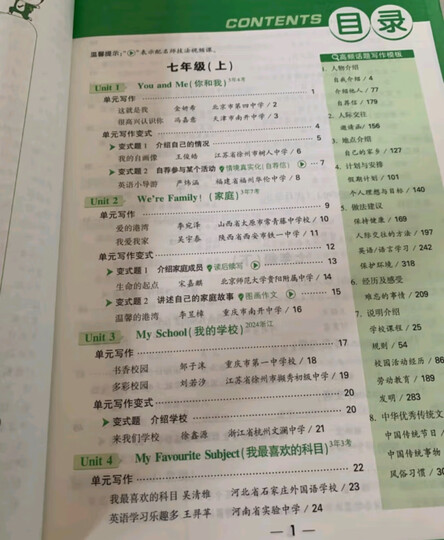 CONTENTS 目录
温馨提示:"▶"表示配名师技法视频课。
七年级(上)
Unit 1 You and Me(你和我) 3年4考
单元写作 1
这就是我 金妍希 北京市第四中学 / 2
很高兴认识你 冯嘉愈 天津市南开中学 / 3
单元写作变式 4
变式题1 介绍自己的情况 5
我的自画像 王俊皓 江苏省徐州市树人中学 / 6
变式题2 自荐参与某个活动 情境真实化(自荐信) 7
英语小导游 严炜温 福建省福州华伦中学 / 8
Unit 2 We're Family!(家庭) 3年7考
单元写作 9
爱的港湾 李宛泽 山西省太原市常青藤中学校 / 10
我爱我家 吴宇泰 陕西省西安市铁一中学 / 11
单元写作变式 12
变式题1 介绍家庭成员 读后续写 13
生命的起点 宋嘉麒 北京师范大学贵阳附属中学 / 14
变式题2 讲述自己的家庭故事 图画作文 15
温馨的港湾 李昱樟 重庆市南开中学 / 16
Unit 3 My School(我的学校) 2024浙江
单元写作 17
书香校园 邹子沫 重庆市第一中学校 / 18
多彩校园 刘若汐 江苏省徐州市撷秀初级中学 / 19
单元写作变式 20
变式题 介绍学校 20
来我们学校 徐鑫源 浙江省杭州文澜中学 / 21
Unit 4 My Favourite Subject(我最喜欢的科目) 3年3考
单元写作 22
我最喜欢的科目 吴清雅 河北省石家庄外国语学校 / 23
英语学习乐趣多 王羿苹 河南省实验中学 / 24
高频话题写作模板
1. 人物介绍
自我介绍 / 4
介绍他人 / 77
自荐信 / 179
2. 人际交往
邀请函 / 156
3. 地点介绍
自己的家乡 / 127
4. 计划与安排
假期计划 / 101
个人理想与目标 / 140
5. 做法建议
保持健康 / 169
人际交往的方法 / 197
英语/语言学习 / 242
保护环境 / 318
6. 经历及感受
难忘的事情 / 209
7. 说明介绍
学校课程 / 25
规则 / 54
校园活动经历 / 86
劳动教育 /
发明 / 283
8. 中华优秀传统文
中国传统节日 /
中国传统事物
风俗习惯 / 30
1